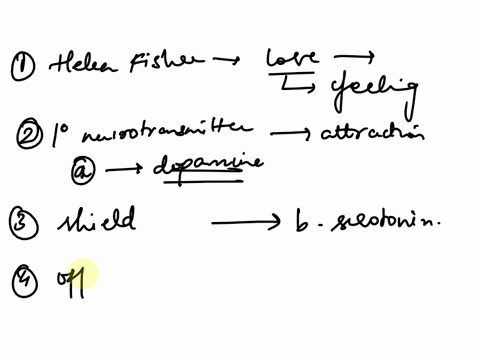 ① Helen Fisher → love →
↳ feeling
② 1° neurotransmitter → attraction
ⓐ → dopamine
③ shield → b. serotonin.
④ off